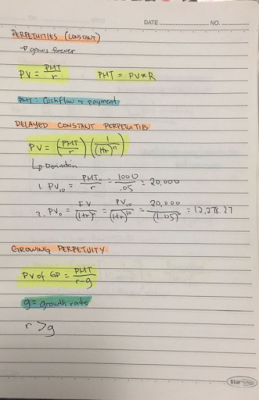 DATE NO.
PERPETUITIES (CONSTANT)
→ grows forever
PV = PMT / r   PMT = PV*R
PMT: Cashflow & payment
DELAYED CONSTANT PERPETUITIES
PV = (PMT / r) (1 / (1+r)^n)
↳ Derivation
1. PV₁₀ = PMT / r = 1000 / .05 = 20,000
2. PV₀ = FV / (1+r)^n = PV₁₀ / (1+r)^10 = 20,000 / (1.05)^10 = 12,278.27
GROWING PERPETUITY
PV of GP = PMT / r-g
g = growth rate
r > g